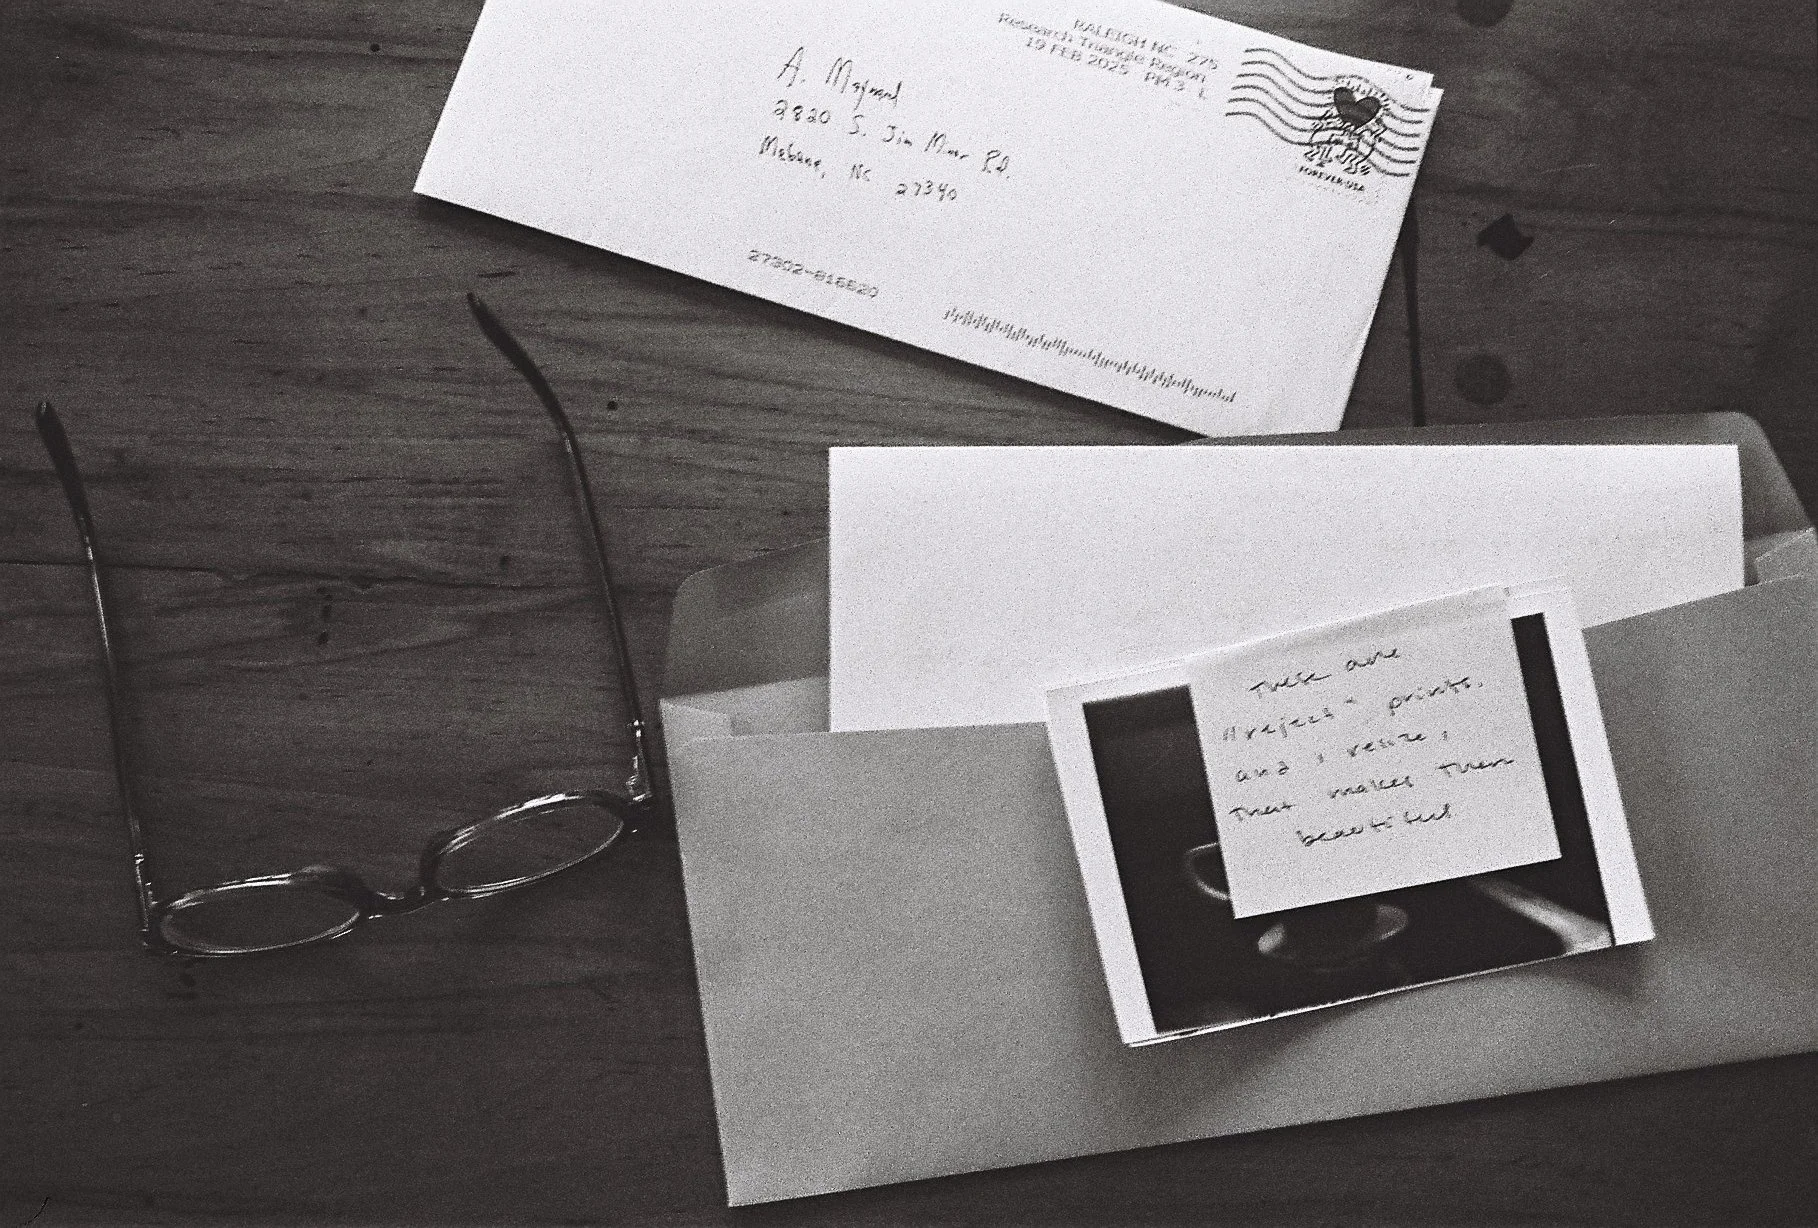 RALEIGH NC 275
Research Triangle Region
19 FEB 2025 PM 3 L
A. Maynard
2820 S. Jim Minor Rd.
Mebane, NC 27340
FOREVER USA
27302-816620
These are
"reject" prints.
and, resize,
that makes them
beautiful